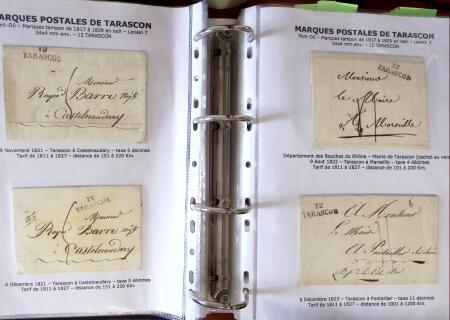 MARQUES POSTALES DE TARASCON
Port-DÛ – Marques tampon de 1817 à 1829 en noir – Lenain 7
34x4 mm env. – 12 TARASCON
12
TARASCON
Monsieur
Raymd Barre Negt
à Castelnaudary
9 Novembre 1821 – Tarascon à Castelnaudary – taxe 5 décimes
Tarif de 1811 à 1827 – distance de 151 à 220 Km.
12
TARASCON
Monsieur
Raymd Barre Negt
à Castelnaudary
4 Décembre 1821 – Tarascon à Castelnaudary – taxe 5 décimes
Tarif de 1811 à 1827 – distance de 151 à 220 Km.
MARQUES POSTALES DE TARASCON
Port-DÛ – Marques tampon de 1817 à 1829 en noir – Lenain 7
34x4 mm env. – 12 TARASCON
12
TARASCON
Monsieur
le Maire
à Marseille
Département des Bouches du Rhône – Mairie de Tarascon (cachet au
9 Aout 1822 – Tarascon à Marseille – taxe 4 décimes
Tarif de 1811 à 1827 – distance de 101 à 200 Km.
12
TARASCON
A Monsieur
à Pontailler
5 Décembre 1823 – Tarascon à Pontarlier – taxe 11 décimes
Tarif de 1811 à 1827 – distance de 1001 à 1200 Km.